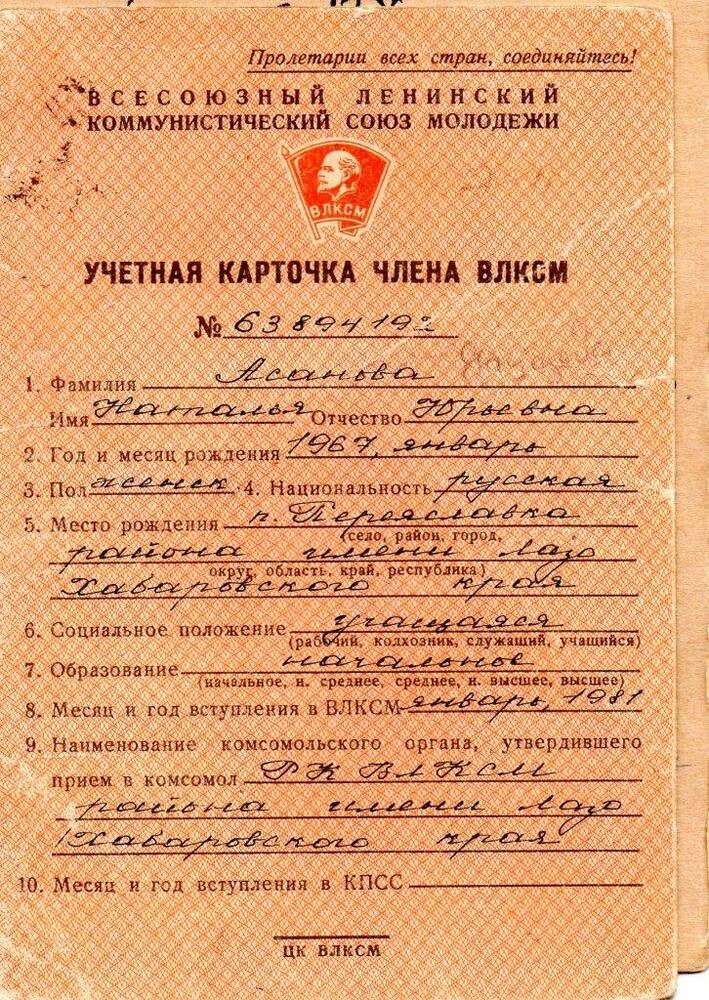 Пролетарии всех стран, соединяйтесь!
ВСЕСОЮЗНЫЙ ЛЕНИНСКИЙ
КОММУНИСТИЧЕСКИЙ СОЮЗ МОЛОДЕЖИ
ВЛКСМ
УЧЕТНАЯ КАРТОЧКА ЧЛЕНА ВЛКСМ
№ 63894192
1. Фамилия Асанова
Имя Наталья Отчество Юрьевна
2. Год и месяц рождения 1967, январь
3. Пол женск. 4. Национальность русская
5. Место рождения п. Переяславка
(село, район, город,
района имени Лазо
округ, область, край, республика)
Хабаровского края
6. Социальное положение учащаяся
(рабочий, колхозник, служащий, учащийся)
7. Образование начальное
(начальное, н. среднее, среднее, н. высшее, высшее)
8. Месяц и год вступления в ВЛКСМ январь, 1981
9. Наименование комсомольского органа, утвердившего
прием в комсомол РК ВЛКСМ
района имени Лазо
Хабаровского края
10. Месяц и год вступления в КПСС
ЦК ВЛКСМ